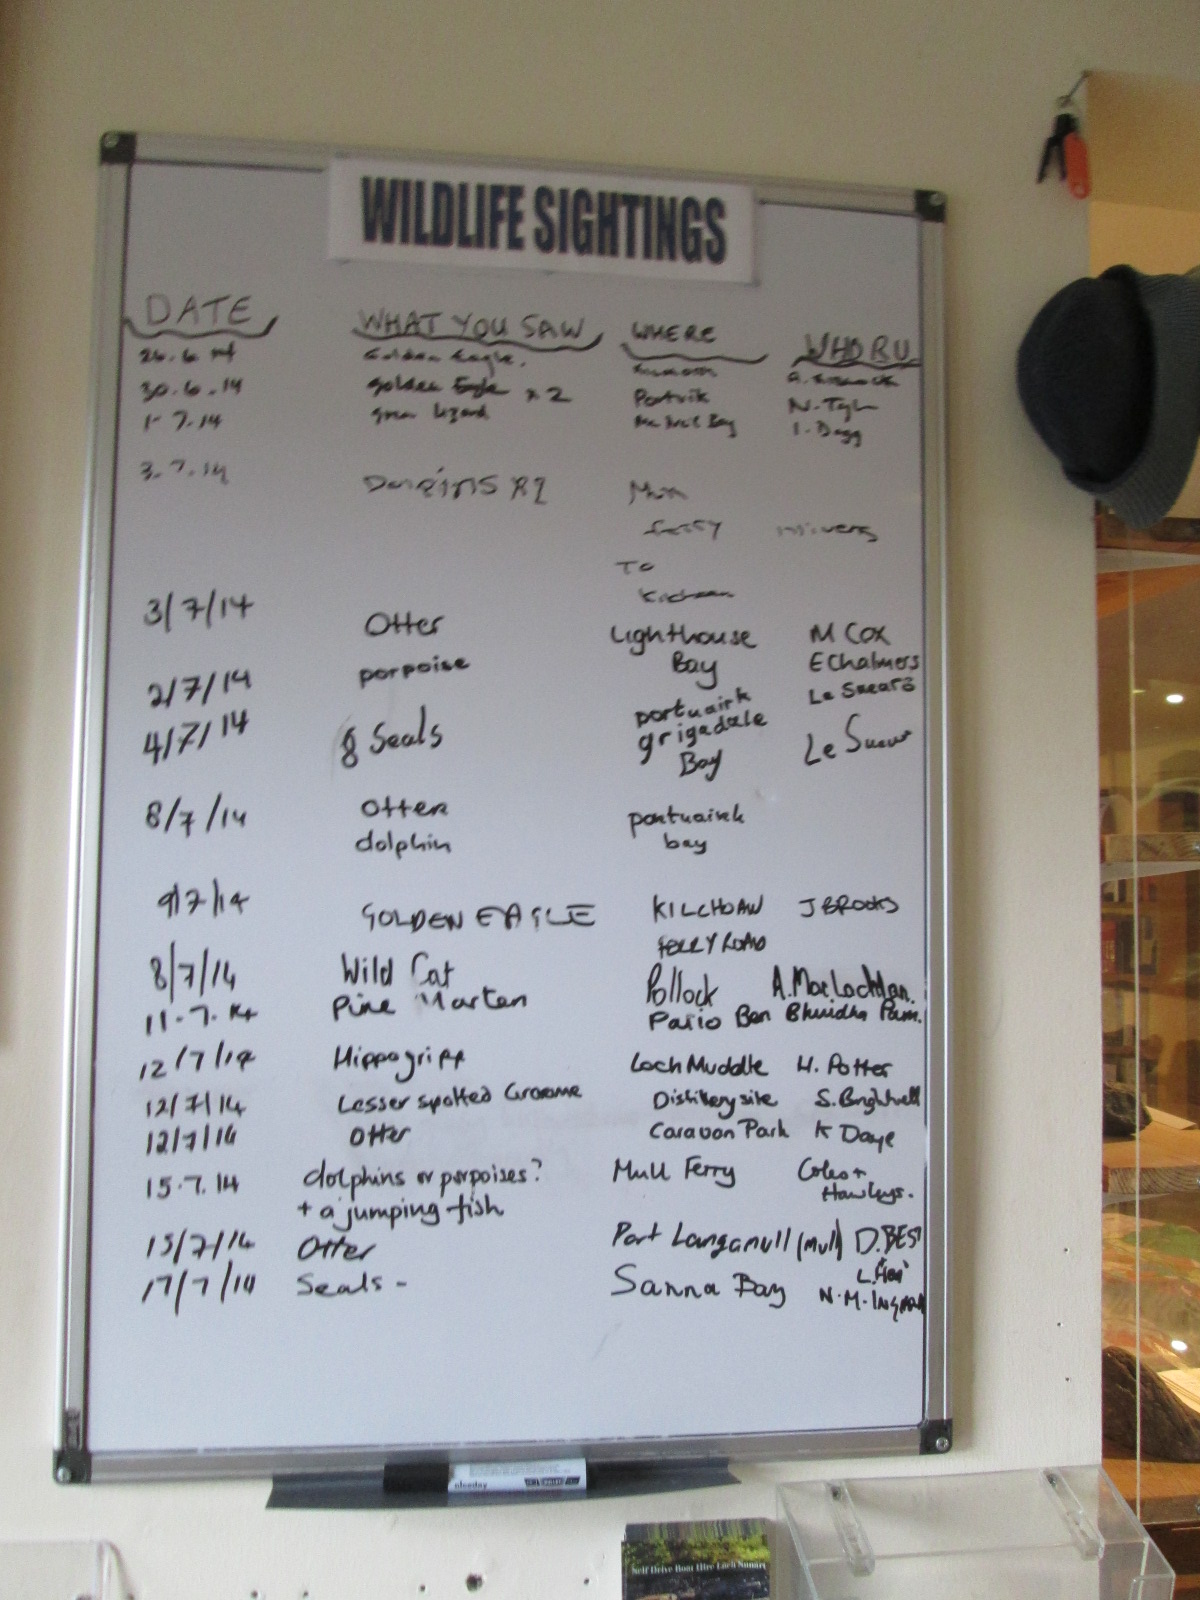 WILDLIFE SIGHTINGS
DATE WHAT YOU SAW WHERE WHO R U
26.6 Golden Eagle.
30.6.14 golden Eagle x 2 Portvik N.
1-7.14 green lizard Mc Neil Bay I. Dagg
3.7.14 x2 Mull
ferry
To
3/7/14 Otter Lighthouse M Cox
Bay E Chalmers
2/7/14 porpoise portuairk Le
4/7/14 8 Seals grigadale Le Sueur
Bay
8/7/14 Otter portuairk
dolphin bay
9/7/14 GOLDEN EAGLE KILCHOAN J BROOKS
FERRY ROAD
8/7/14 Wild Cat Pollock A. MacLachlan.
11.7.14 Pine Marten Patio Ben Bhuidha Pam.
12/7/14 Hippogriff Loch Muddle H. Potter
12/7/14 Lesser spotted Groome Distillery site S. Brightwell
12/7/14 Otter Caravan Park K Daye
15.7.14 dolphins or porpoises? Mull Ferry Coles +
+ a jumping fish Hawleys.
15/7/14 Otter Port Langamull (Mull) D. BEST
17/7/14 Seals - Sanna Bay
N.M. INGRAM
Self Drive Boat Hire Loch Sunart